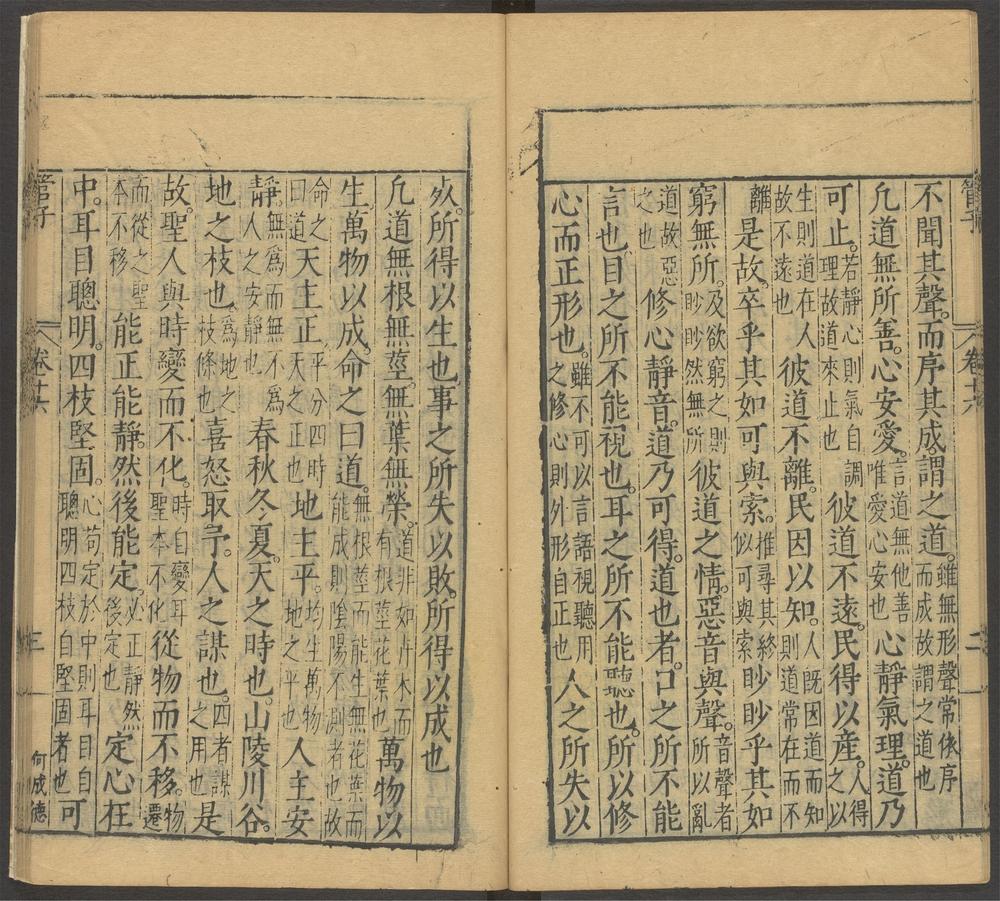 管子
卷十六
二
不聞其聲。而序其成。謂之道。雖無形聲常依序而成故謂之道也
凢道無所善。心安愛。言道無他善唯愛心安也心靜氣理。道乃
可止。若靜心則氣自調理故道來止也彼道不遠。民得以產。人得之以
生則道在人故不遠也彼道不離。民因以知。人既因道而知則道常在而不
離是故。卒乎其如可與索。推尋其終似可與索眇眇乎其如
窮無所。及欲窮之則眇眇然無所彼道之情。惡音與聲。音聲者所以亂
道故惡之也修心靜音。道乃可得。道也者。口之所不能
言也。目之所不能視也。耳之所不能聽也。所以修
心而正形也。雖不可以言語視聽用之修心則外形自正也人之所失以
死。所得以生也。事之所失以敗。所得以成也
凢道無根無莖。無葉無榮。道非如卉木而有根莖花葉也萬物以
生萬物以成。命之曰道。無根莖而能生無花葉而能成則陰陽不測者也故
命之曰道天主正平分四時天之正也地主平。均生萬物地之平也人主安
靜。無爲而無不爲人之安靜也春秋冬夏。天之時也。山陵川谷。
地之枝也。爲地之枝條也喜怒取予。人之謀也。四者謀之用也是
故。聖人與時變而不化。時自變耳聖本不化從物而不移。物遷
而從之聖本不移能正能靜。然後能定。必正靜然後定也定心在
中。耳目聰明。四枝堅固。心苟定於中則耳目自聰明四枝自堅固者也可
管子
卷十六
三
何成德